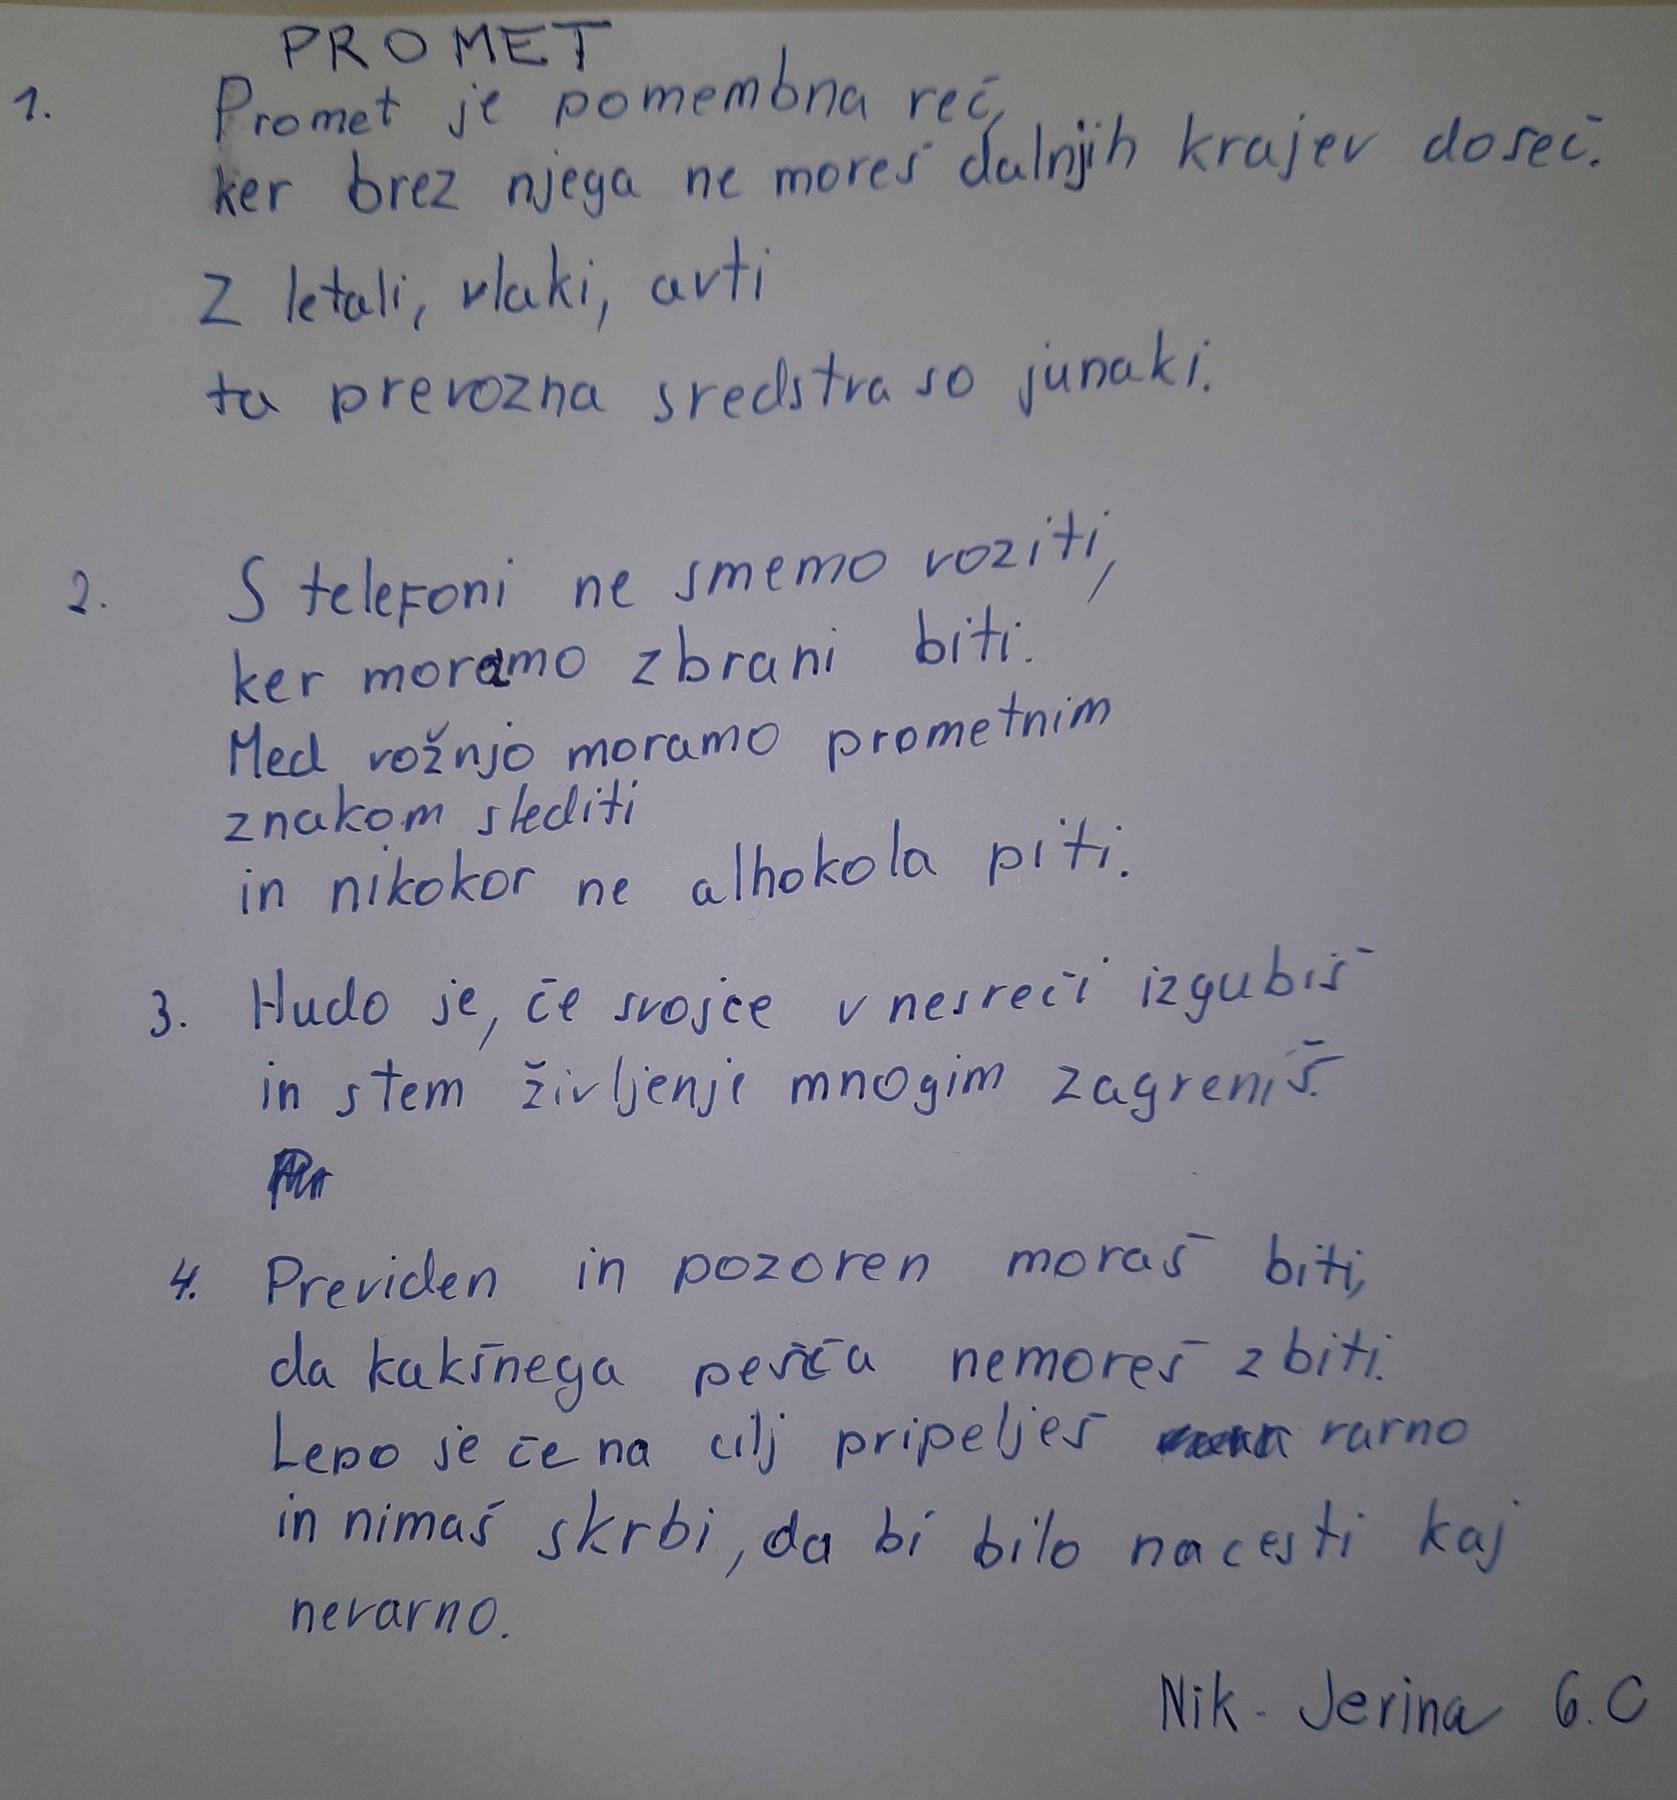 PROMET
1. Promet je pomembna reč,
ker brez njega ne moreš dalnjih krajev doseč.
Z letali, vlaki, avti
ta prevozna sredstva so junaki.
2. S telefoni ne smemo voziti,
ker moramo zbrani biti.
Med vožnjo moramo prometnim
znakom slediti
in nikokor ne alhokola piti.
3. Hudo je, če svojce v nesreči izgubiš
in stem življenje mnogim zagreniš.
4. Previden in pozoren moraš biti,
da kakšnega pešča nemoreš zbiti.
Lepo je če na cilj pripelješ varno
in nimaš skrbi, da bi bilo na cesti kaj
nevarno.
Nik Jerina 6.C